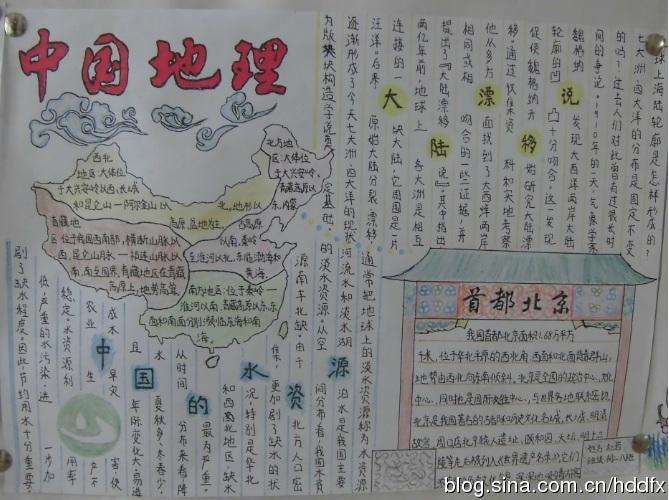 中国地理
大陆漂移说
地球上海陆轮廓是怎样形成的？
七大洲、四大洋的分布是固定不变
的吗？过去人们对此曾有过很长时
间的争论。1910年的一天，气象学家
魏格纳 发现大西洋两岸大陆
轮廓的凹 凸十分吻合。这一发现
促使魏格纳开 始研究大陆漂
移，通过收集资 料和实地考察，
他从多方 面找到了大西洋两岸
相同或相 吻合的一些证据，并
提出了"大陆漂移 说"。其中指出：
两亿年前地球上 各大洲是相互
连接的一 块大陆，它周围是一片
汪洋。后来 原始大陆分裂、漂移，
逐渐形成了今天七大洲、四大洋的现状
西北
地区：大体位
于大兴安岭以西，长城
和昆仑山—阿尔金山以
北。
北方地
区：大体位
于大兴安岭、
青藏高原以
东，内蒙
古高原
以南，秦岭
—淮河以北，东临渤海和
黄海
青藏地
区：位于我国西南部，横断山脉以
西，昆仑山脉—祁连山脉以
南，南至国界。青藏地区在青藏
高原上，地势高耸
南方地区：位于秦岭—
淮河以南，青藏高原以东，东
面和南面分别濒临东海和南
海。
中国的水资源
通常把地球上的淡水资源称为水资源
河流水和淡水湖
泊水是我国主要
的淡水资源。从空
间分布看，我国水资
源南丰北缺，由于
北方人口密
集，更加剧了缺水的状
况，特别是华北
和西北地区缺水
最为严重。
从时间
分布来看，降
水
夏秋多，冬春少，
且
年际变化大，易造
成水
旱灾
害，使
农业
生
产不
稳定。水资源利
用率
低，严重的水污染，进
一步加
剧了缺水程度。因此，节约用水十分重要。
首都北京
我国首都北京面积1.68万平方
千米，位于华北平原的西北端，西面和北面背靠群山，
地势由西北向东南倾斜。北京是全国的政治中心、文化
中心，同时也是国际交往中心，与世界各地联系密切。
北京是我国著名的古都和历史文化名城，长城、明清
故宫、周口店北京猿人遗址、颐和园、天坛、明十三
陵等先后被列入《世界遗产名录》
blog.sina.com.cn/hddfx